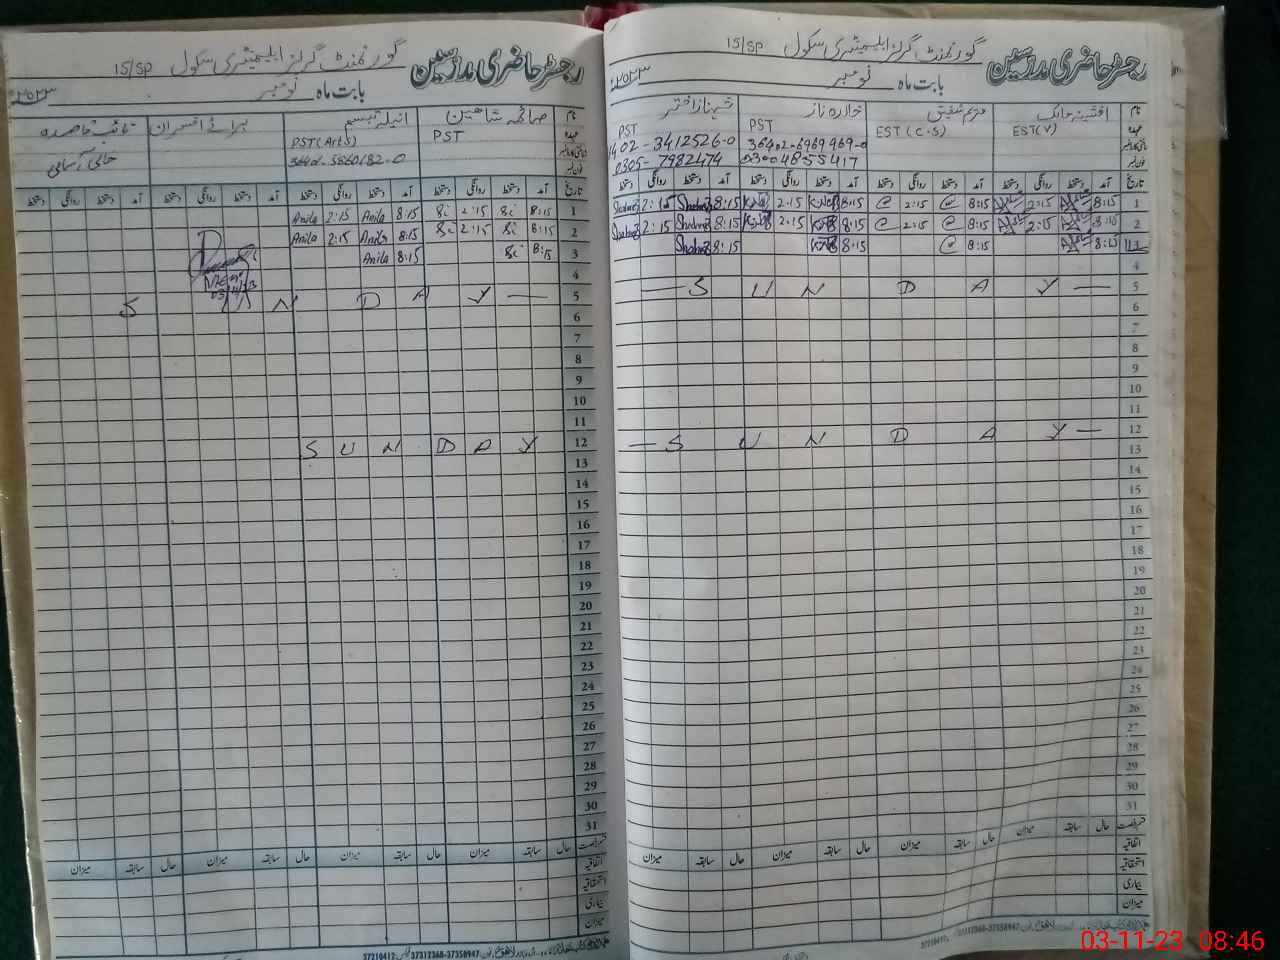 رجسٹر حاضری مدرسین گورنمنٹ گرلز ایلیمنٹری سکول 15/SP
بابت ماہ نومبر ۲۰۲۳ء
نام افشینہ مالک مریم شفیق خالدہ ناز شہناز اختر
عہدہ EST(V) EST (C.S) PST PST
36402-6969969-0 02-3412526-0
03004855417 0305-7982474
تاریخ آمد دستخط روانگی دستخط آمد دستخط روانگی دستخط آمد دستخط روانگی دستخط آمد دستخط روانگی دستخط
1 8:15 2:15 8:15 2:15 8:15 2:15 8:15 Shahnaz 2:15 Shahnaz
2 8:15 2:15 8:15 2:15 8:15 2:15 8:15 Shahnaz 2:15 Shahnaz
8:15 8:15 8:15 8:15 Shahnaz
4
5 — S U N D A Y —
6
7
8
9
10
11
12 — S U N D A Y —
13
14
15
16
17
18
19
20
21
22
23
24
25
26
27
28
29
30
31
حال سابقہ میزان حال سابقہ میزان حال سابقہ میزان حال سابقہ میزان
اتفاقیہ
استحقاقیہ
بیماری
میزان
رجسٹر حاضری مدرسین گورنمنٹ گرلز ایلیمنٹری سکول 15/SP
بابت ماہ نومبر ۲۰۲۳ء
نام صائمہ شاھین انیلہ تبسم برائے افسران نائب قاصدہ
PST PST (Arts) خالی آسامی
36402-5860182-0
تاریخ آمد دستخط روانگی دستخط آمد دستخط روانگی دستخط آمد دستخط روانگی دستخط آمد دستخط روانگی دستخط
1 8:15 2:15 8:15 Anila 2:15 Anila
2 8:15 2:15 8:15 Anila 2:15 Anila
3 8:15 8:15 Anila
4
5 S U N D A Y —
6
7
8
9
10
11
12 S U N D A Y
13
14
15
16
17
18
19
20
21
22
23
24
25
26
27
28
29
30
31
حال سابقہ میزان حال سابقہ میزان حال سابقہ میزان حال سابقہ میزان
اتفاقیہ
استحقاقیہ
بیماری
میزان
37210412 37312368-37358947
03-11-23 08:46